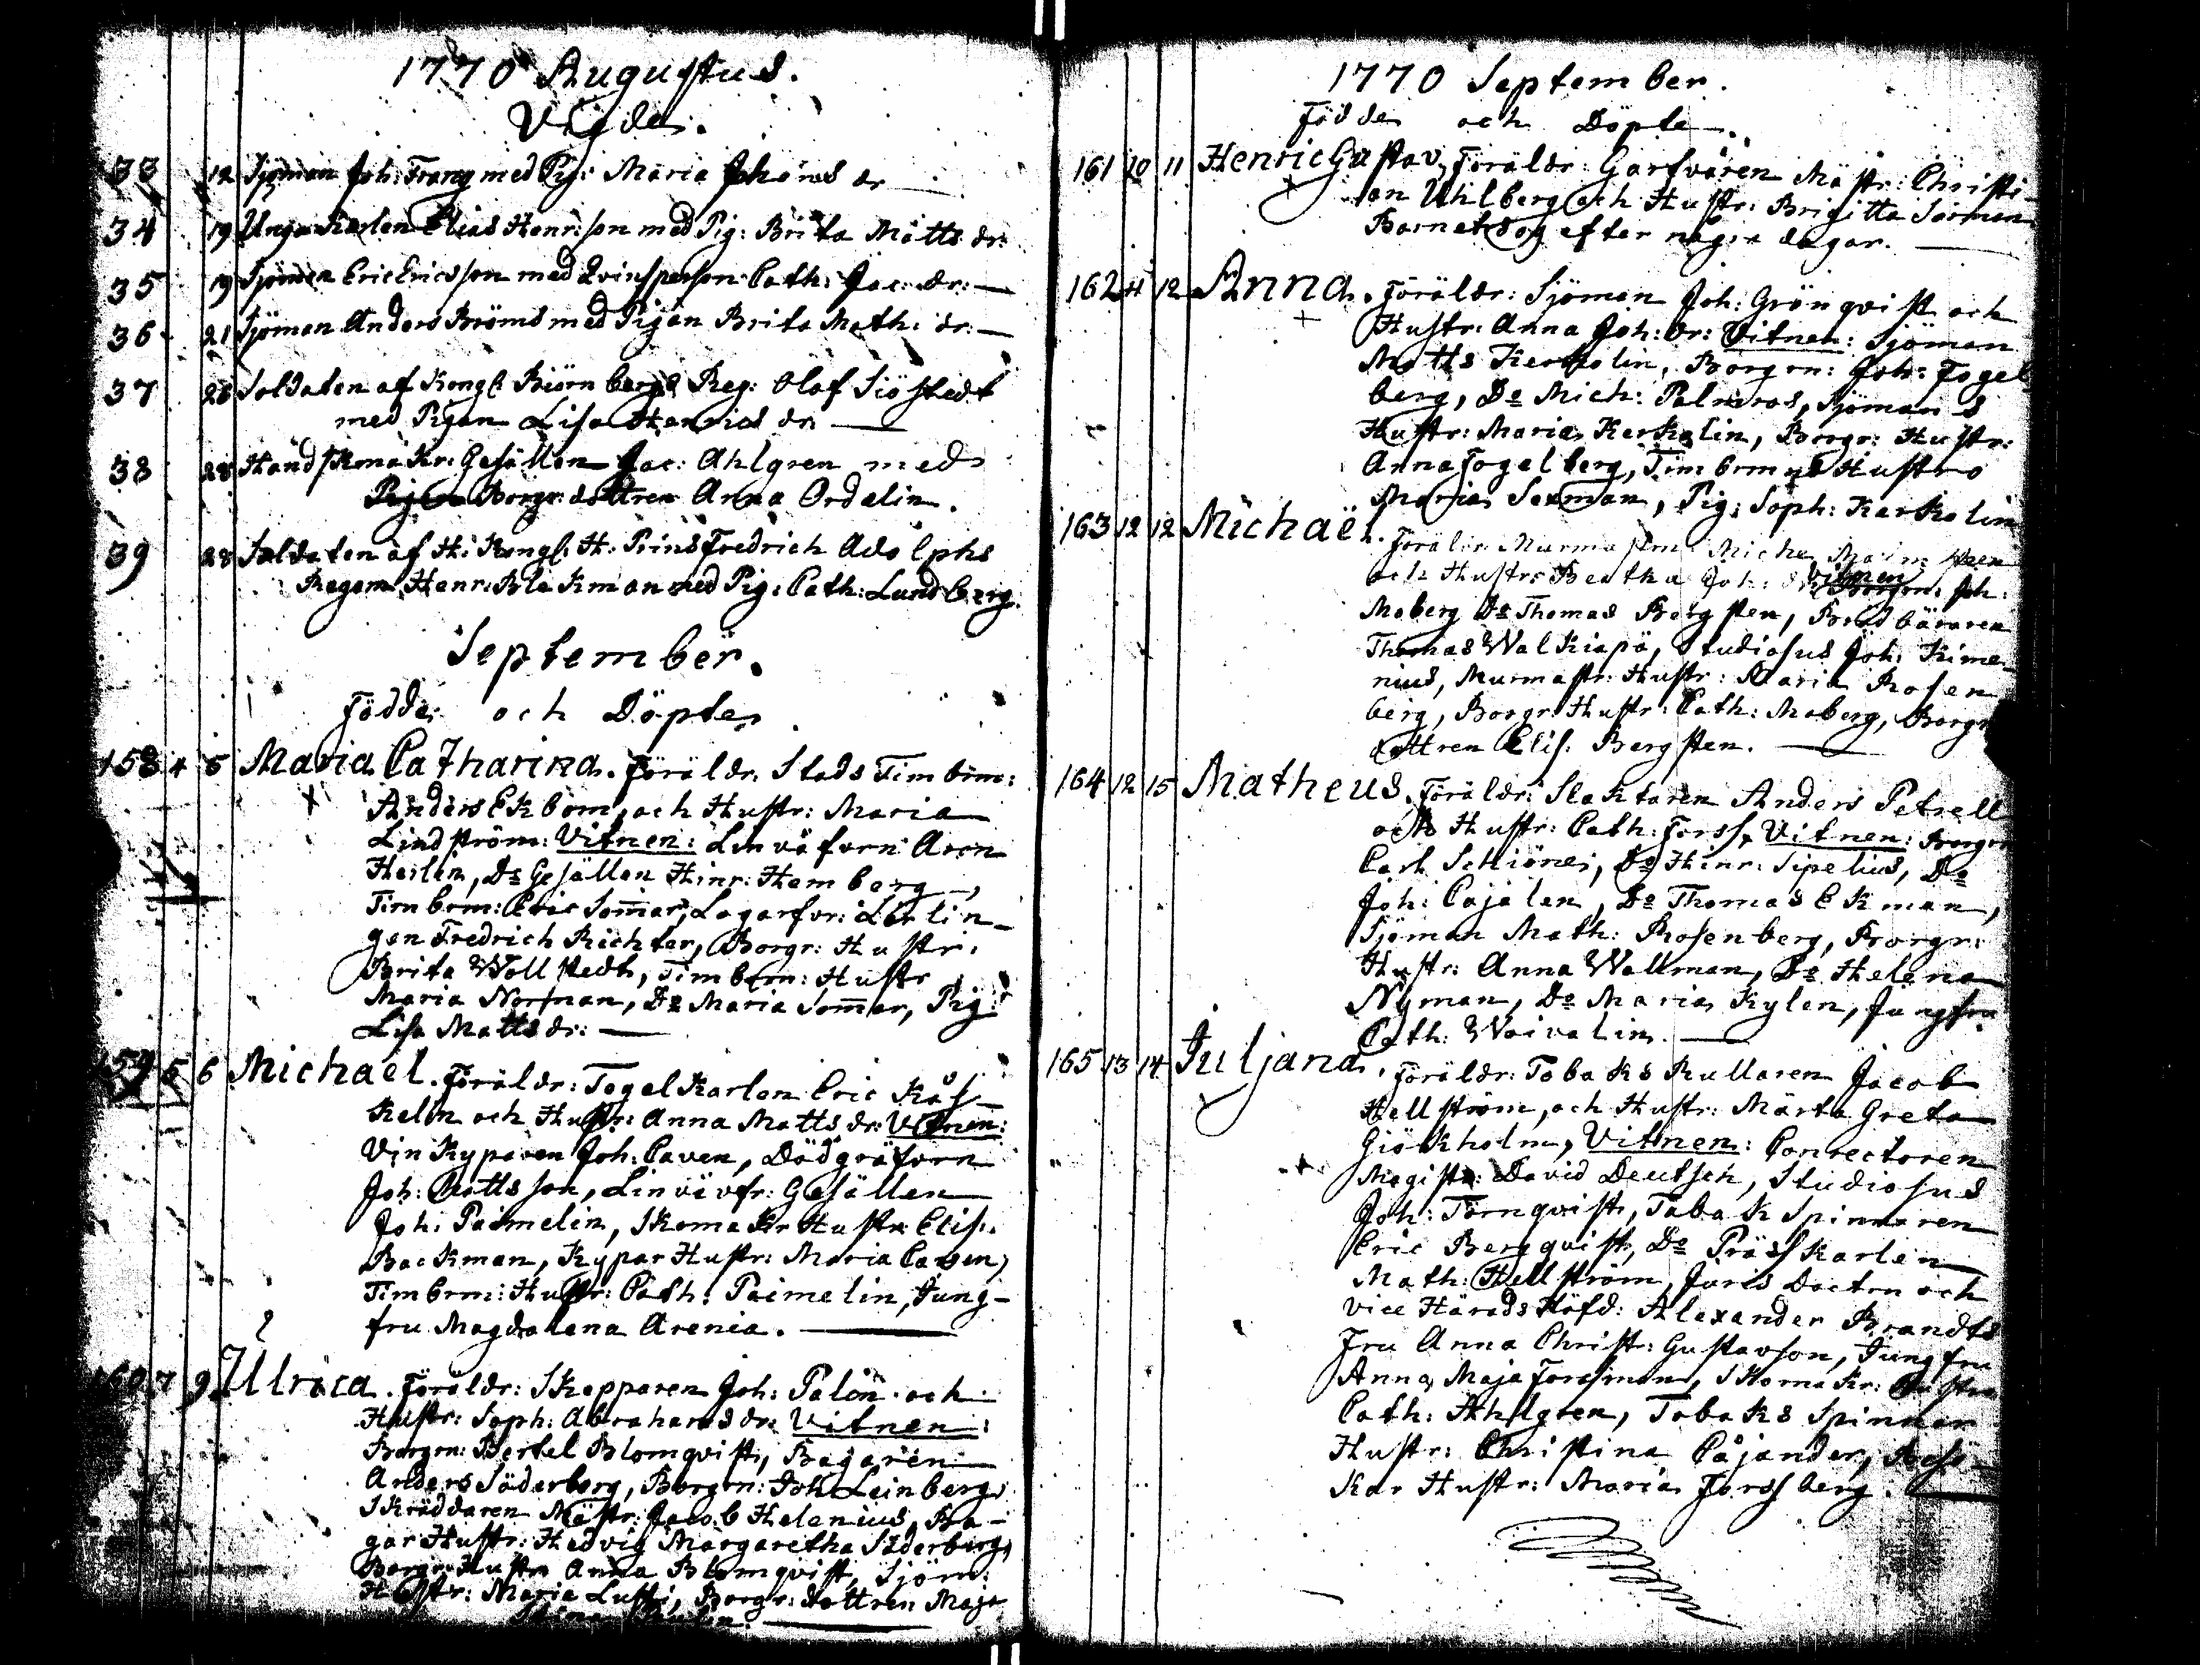 1770 Augustus.
Vigde.
33 12 Sjöman Joh: Trang med Pig: Maria Johans dr
34 19 Unga Karlen Elias Henr: son med Pig: Brita Matts dr:
35 19 Sjöman Eric Ericsson med Qvinsperson Cath: Jac: dr:
36 21 Sjöman Anders Broms med Pigan Brita Math: dr:
37 28 Soldaten af Kongl Biörneborgs Reg: Olof Siöstedt
med Pigan Lisa Henrics dr
38 28 Handskmakr: Gesällen Jac: Ahlgren med
Borgr: dottren Anna Ordelin.
39 28 Soldaten af H: Kongl: H: Prins Fredrich Adolphs
Regem Henr: Blekman med Pig: Cath: Lundberg.
September.
Födde och Döpte
158 4 5 Maria Catharina. Föräldr: Stads Timbrm:
Anders Ekbom, och Hustr: Maria
Lindström: Vitnen: Linväfvrn Aron
Herlin, Do Gesällen Hinr: Hemberg,
Timbrm: Eric Som̄ar, Logarfvr: Lärlin-
gen Fredrich Richter, Borgr: Hustr:
Brita Wollstedt, Timbrm: Hustr
Maria Norman, Do Maria Som̄ar, Pig:
Lisa Matts dr:
159 5 6 Michael. Föräldr: Tegelkarlen Eric Kas-
kelin och Hustr: Anna Matts dr: Vitnen:
Vinkyparen Joh: Caven, Dödgräfvrn
Joh: Mattsson, Linväfvr: Gesällen
Joh: Paimelin, Skomakr Hustr: Elis:
Backman, Kypar Hustr: Maria Caven,
Timbrm: Hustr: Cath: Paimelin, Jung-
fru Magdalena Arenia.
160 7 9 Ulrica. Föräldr: Skepparen Joh: Palén och
Hustr: Soph: Abrahams dr: Vitnen:
Borgrn: Bertel Blomqvist, Bagaren
Anders Söderberg, Borgrn: Joh Leinberg,
Skräddaren Mästr: Jacob Helenius, Ba-
gar Hustr: Hedvig Margaretha Söderberg,
Borgr: Hustr Anna Blomqvist, Sjöm:
Hustr: Maria Lusti, Borgr: dottren Maja
1770 September.
Födde och Döpte.
161 10 11 Henric Gustav, Föräldr: Garfvaren Mästr: Christi-
an Uhlberg och Hustr: Brigitta Sarman
Barnet dog efter några dagar.
162 11 12 Anna. Föräldr: Sjöman Joh: Grönqvist och
Hustr: Anna Joh: dr: Vitnen: Sjöman
Matts Kerkolin, Borgrn: Joh: Fogel
berg, Do Mich: Palmros, Sjömans
Hustr: Maria Kerkolin, Borgr: Hustr:
Anna Fogelberg, Timbrmns Hustro
Maria Saxman, Pig: Soph: Karkolin
163 12 12 Michaël. Föräldr: Murmastrn
och Hustr: Beatha Joh: dr: Vitnen Borgrn: Joh:
Moberg Do Thomas Bergsten, Brödbäraren
Thomas Walkiapä, Studiosus Joh: Kime-
nius, Murmastr: Hustr: Maria Rosen
berg, Borgr: Hustr: Cath: Moberg, Borgr
dottren Elis: Bergsten.
164 12 15 Matheus. Föräldr: Slaktaren Anders Petrell
och Hustr: Cath: Forss, Vitnen: Borgrn
Carl Schiöner, Do Hinr: Sipelius, Do
Joh: Cajalen, Do Thomas Ekman,
Sjöman Math: Rosenberg, Borgr:
Hustr: Anna Wallman, Do Helena
Nyman, Do Maria Kylen, Jungfru
Cath: Waivalin.
165 13 14 Juljana. Föräldr: Tobaks Rullaren Jacob
Hellström, och Hustr: Märta Greta
Giökholm, Vitnen: Conrectoren
Magistr: David Deutsch, Studiosus
Joh: Törnqvist, Tabak Spinnaren
Eric Bergqvist, Do Prässkarlen
Math: Hellström, Juris Doctrn och
vice Häradshöfd: Alexander Brandts
Fru Anna Christ: Gustavson, Jungfru
Anna Maja Forssman, Skomakr: Hustru
Cath: Ahlgren, Tobaks Spinnar
Hustr: Christina Cajander, Besö-
kar Hustr: Maria Forssberg.